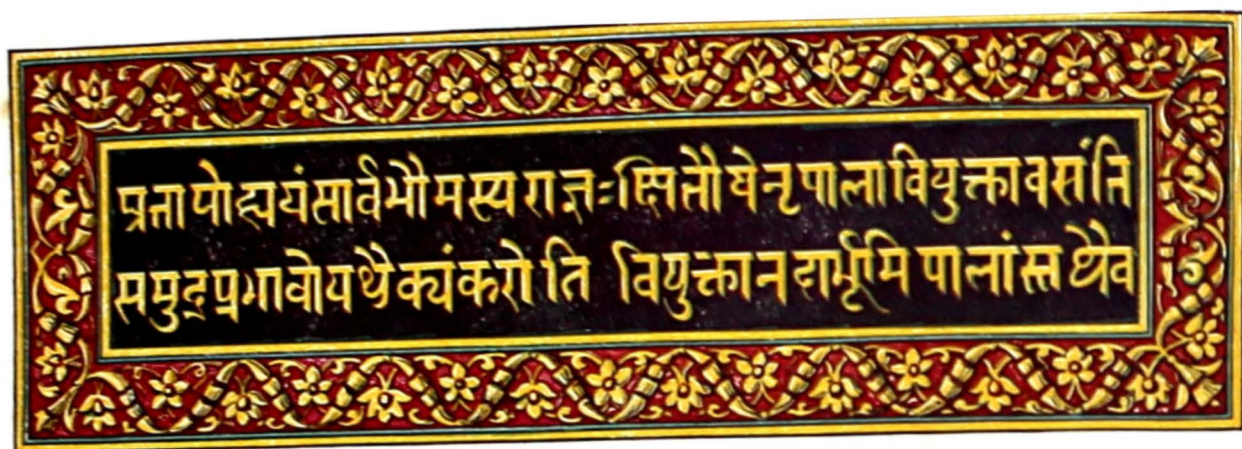 प्रतापोह्ययंसार्वभौमस्यराज्ञः क्षितौयेनृपालावियुक्तावसंति
समुद्रप्रभावोयथैक्यंकरोति वियुक्तानदार्भूमिपालांस्तथैव